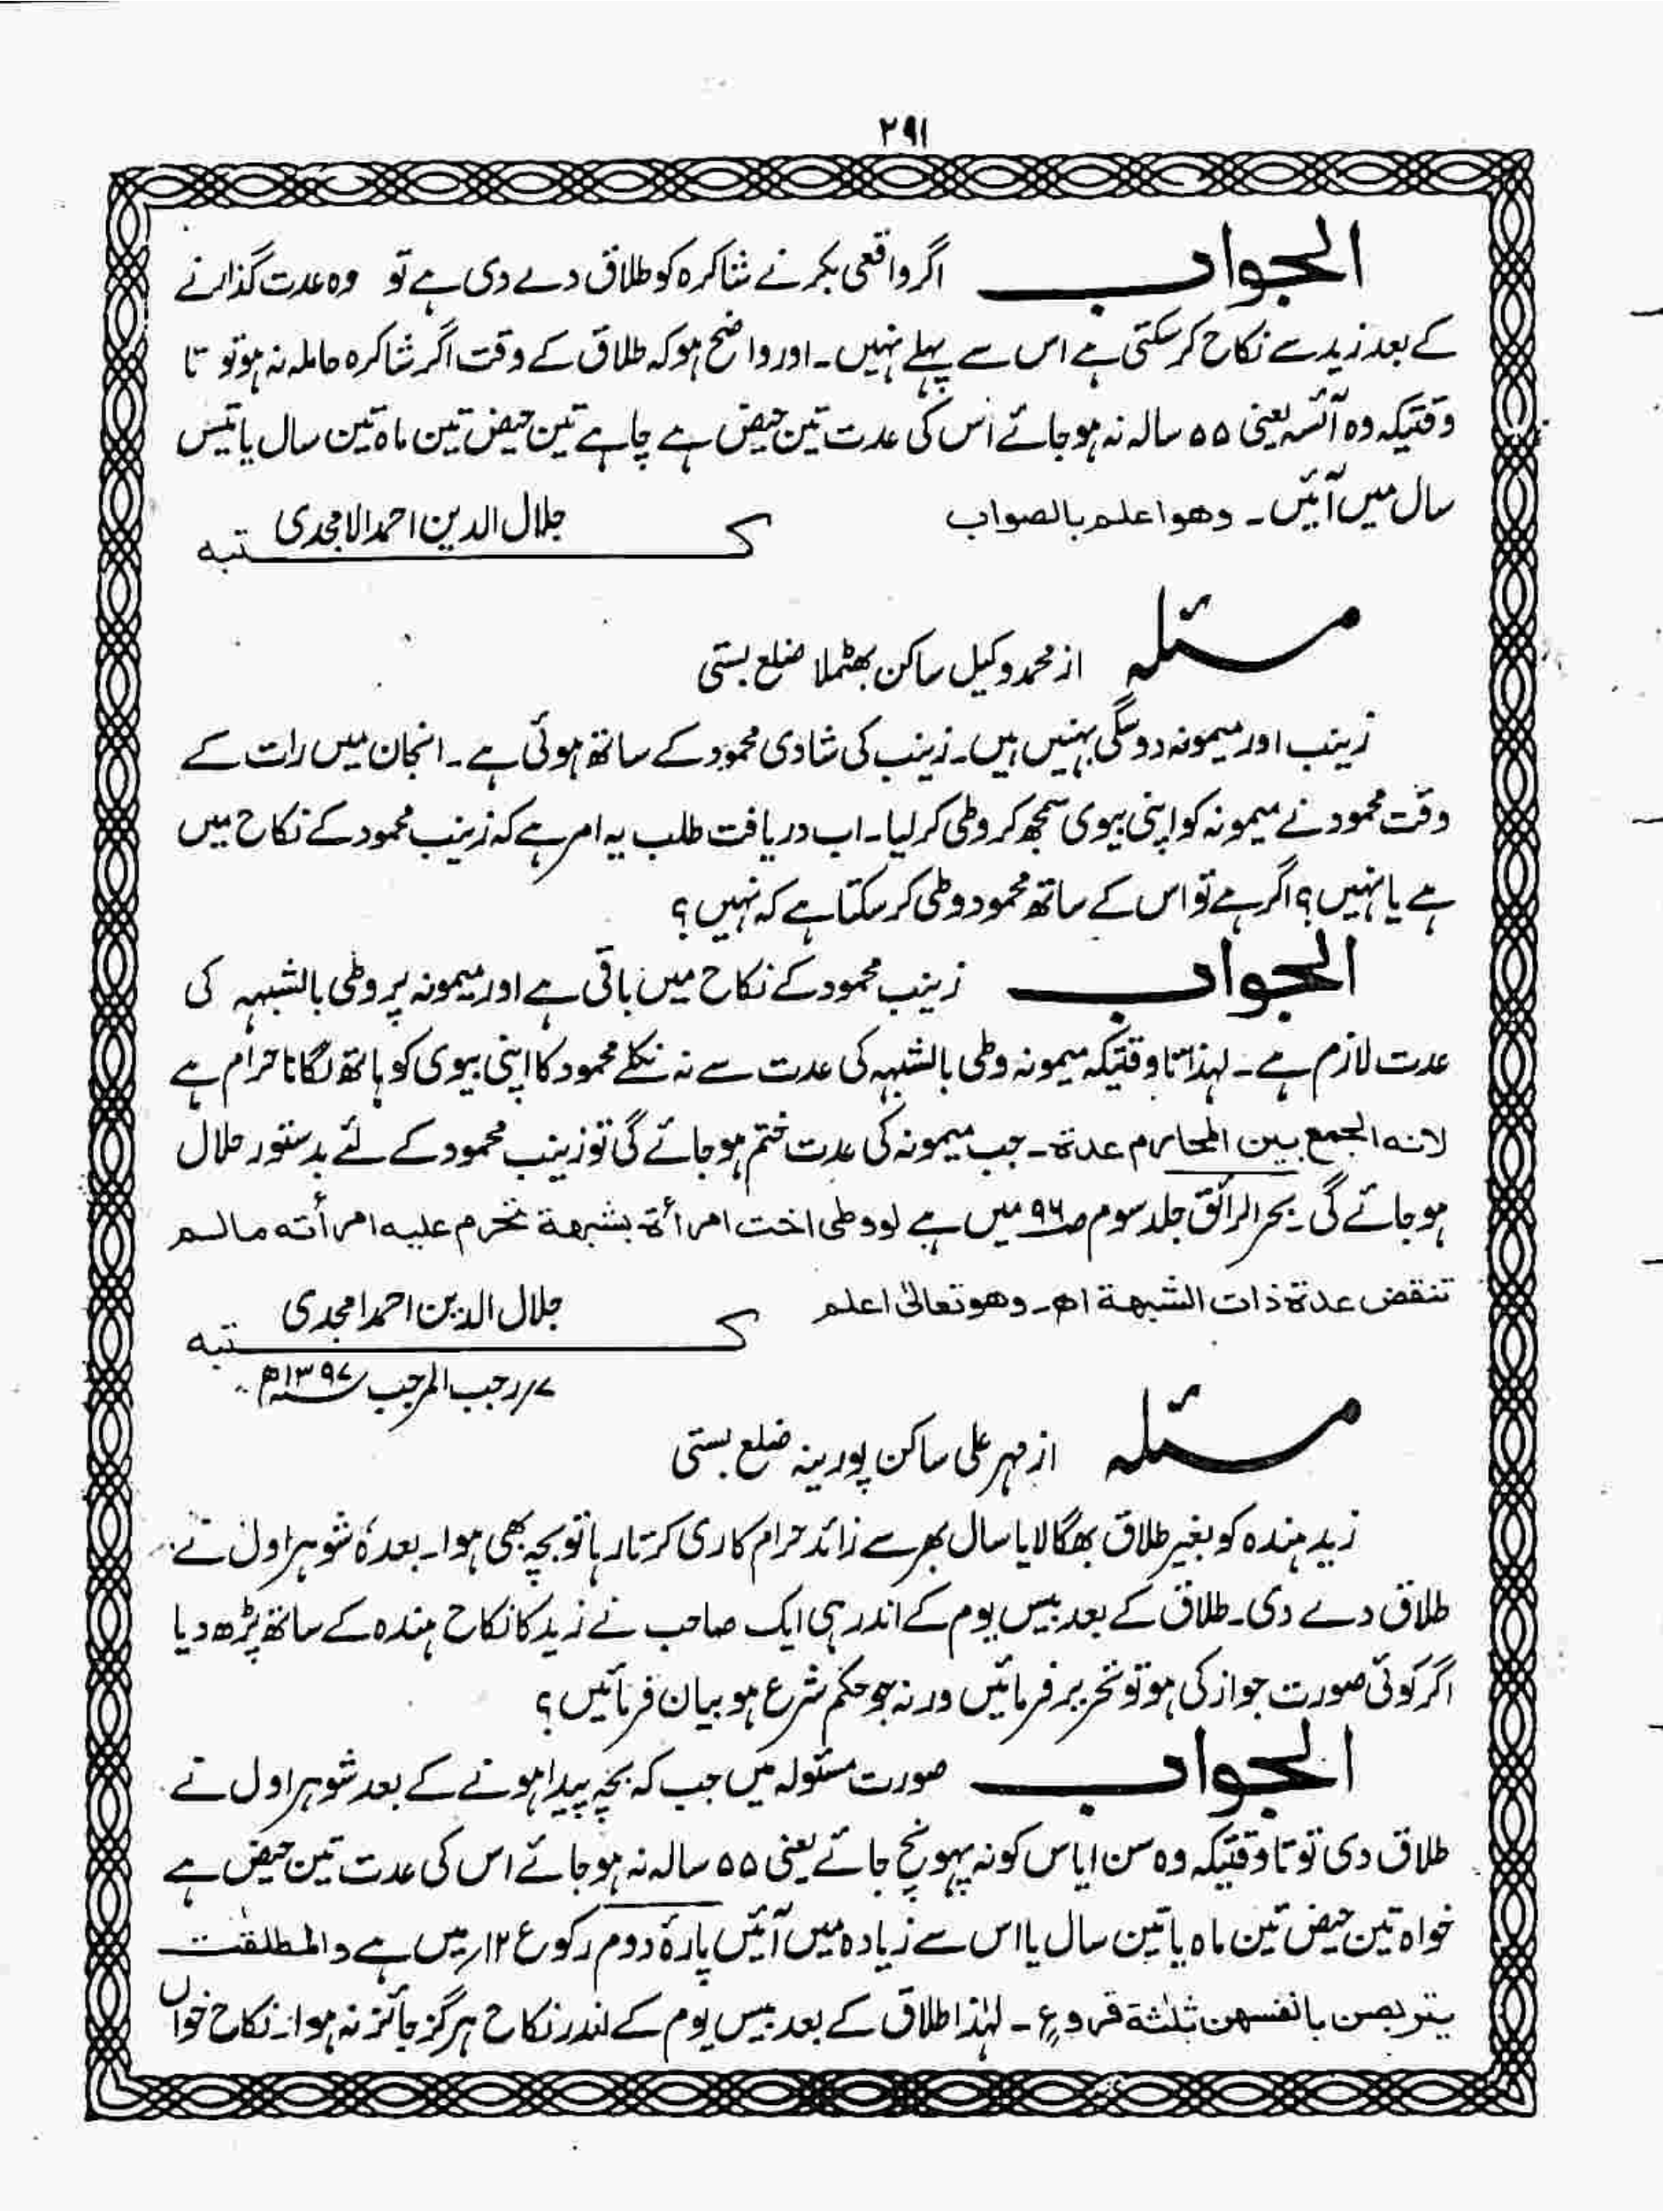 ۲۹۱
الجواب اگر واقعی بکر نے شاکرہ کو طلاق دے دی ہے تو وہ عدت گذارنے
کے بعد زید سے نکاح کر سکتی ہے اس سے پہلے نہیں۔ اور واضح ہو کہ طلاق کے وقت اگر شاکرہ حاملہ نہ ہو تو تا
وقتیکہ وہ آئسہ یعنی ۵۵ سالہ نہ ہو جائے اس کی عدت تین حیض ہے چاہے تین حیض تین ماہ تین سال یا تیس
سال میں آئیں۔ وھو اعلم بالصواب
جلال الدین احمد الامجدی
کتبہ
مسئلہ از محمد وکیل ساکن بھٹملا ضلع بستی
زینب اور میمونہ دو سگی بہنیں ہیں۔ زینب کی شادی محمود کے ساتھ ہوئی ہے۔ انجان میں رات کے
وقت محمود نے میمونہ کو اپنی بیوی سمجھ کر وطی کر لیا۔ اب دریافت طلب یہ امر ہے کہ زینب محمود کے نکاح میں
ہے یا نہیں؟ اگر ہے تو اس کے ساتھ محمود وطی کر سکتا ہے کہ نہیں؟
الجواب زینب محمود کے نکاح میں باقی ہے اور میمونہ پر وطی بالشبہہ کی
عدت لازم ہے۔ لہذا تا وقتیکہ میمونہ وطی بالشبہہ کی عدت سے نہ نکلے محمود کا اپنی بیوی کو ہاتھ لگانا حرام ہے
لانہ الجمع بین المحارم عدۃ۔ جب میمونہ کی عدت ختم ہو جائے گی تو زینب محمود کے لئے بدستور حلال
ہو جائے گی۔ بحر الرائق جلد سوم ص۹۶ میں ہے لو وطی اخت امرأۃ بشبھۃ تحرم علیہ امرأتہ مالم
تنقض عدۃ ذات الشبھۃ اھ۔ وھو تعالیٰ اعلم
جلال الدین احمد امجدی
کتبہ
۷؍ رجب المرجب ۱۳۹۷ھ
مسئلہ از مہر علی ساکن پورینہ ضلع بستی
زید ہندہ کو بغیر طلاق بھگا لایا سال بھر سے زائد حرام کاری کرتا رہا تو بچہ بھی ہوا۔ بعدہٗ شوہر اول نے
طلاق دے دی۔ طلاق کے بعد بیس یوم کے اندر ہی ایک صاحب نے زید کا نکاح ہندہ کے ساتھ پڑھ دیا
اگر کوئی صورت جواز کی ہو تو تحریر فرمائیں ورنہ جو حکم شرع ہو بیان فرمائیں؟
الجواب صورت مسئولہ میں جب کہ بچہ پیدا ہونے کے بعد شوہر اول نے
طلاق دی تو تا وقتیکہ وہ سن ایاس کو نہ پہونچ جائے یعنی ۵۵ سالہ نہ ہو جائے اس کی عدت تین حیض ہے
خواہ تین حیض تین ماہ یا تین سال یا اس سے زیادہ میں آئیں پارۂ دوم رکوع ۱۲؍ میں ہے والمطلقٰت
یتربصن بانفسھن ثلٰثۃ قروءٍ۔ لہٰذا طلاق کے بعد بیس یوم کے اندر نکاح ہرگز جائز نہ ہوا۔ نکاح خواں